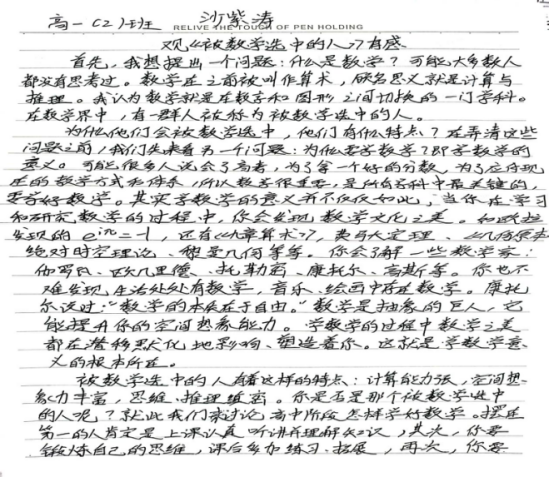 高一(2)班 沙紫涛
RELIVE THE TOUCH OF PEN HOLDING
观《被数学选中的人》有感
首先,我想提出一个问题:什么是数学?可能大多数人
都没有思考过。数学在之前被叫作算术,顾名思义就是计算与
推理。我认为数学就是在数字和图形之间切换的一门学科。
在数学界中,有一群人被称为被数学选中的人。
为什么他们会被数学选中,他们有什么特点?在弄清这些
问题之前,我们先来看另一个问题:为什么要学数学?即学数学的
意义。可能很多人说会了高考,为了拿一个好的分数,为了应付现
在的教学方式和体系,所以数学很重要,是所有学科中最关键的,
要学好数学。其实学数学的意义并不仅仅如此,当你在学习
和研究数学的过程中,你会发现数学文化之美。如欧拉
发现的 e^iπ=-1,还有《九章算术》,费马大定理、《几何原本》
绝对时空理论、 几何等等。你会了解一些数学家:
伽罗瓦、欧几里德、托勒密、康托尔、高斯等。你也不
难发现生活处处有数学,音乐、绘画中存在数学。康托
尔说过:“数学的本质在于自由。”数学是抽象的巨人,它
能提升你的空间想象能力。学数学的过程中数学之美
都在潜移默化地影响、塑造着你。这就是学数学意
义的根本所在。
被数学选中的人有着这样的特点:计算能力强,空间想
象力丰富,思维、推理缜密。你是否是那个被数学选中
的人呢?就此我们来讨论高中阶段怎样学好数学。摆在
第一的人肯定是上课认真听讲并理解知识,其次,你要
锻炼自己的思维,课后多加练习、拓展,再次,你要